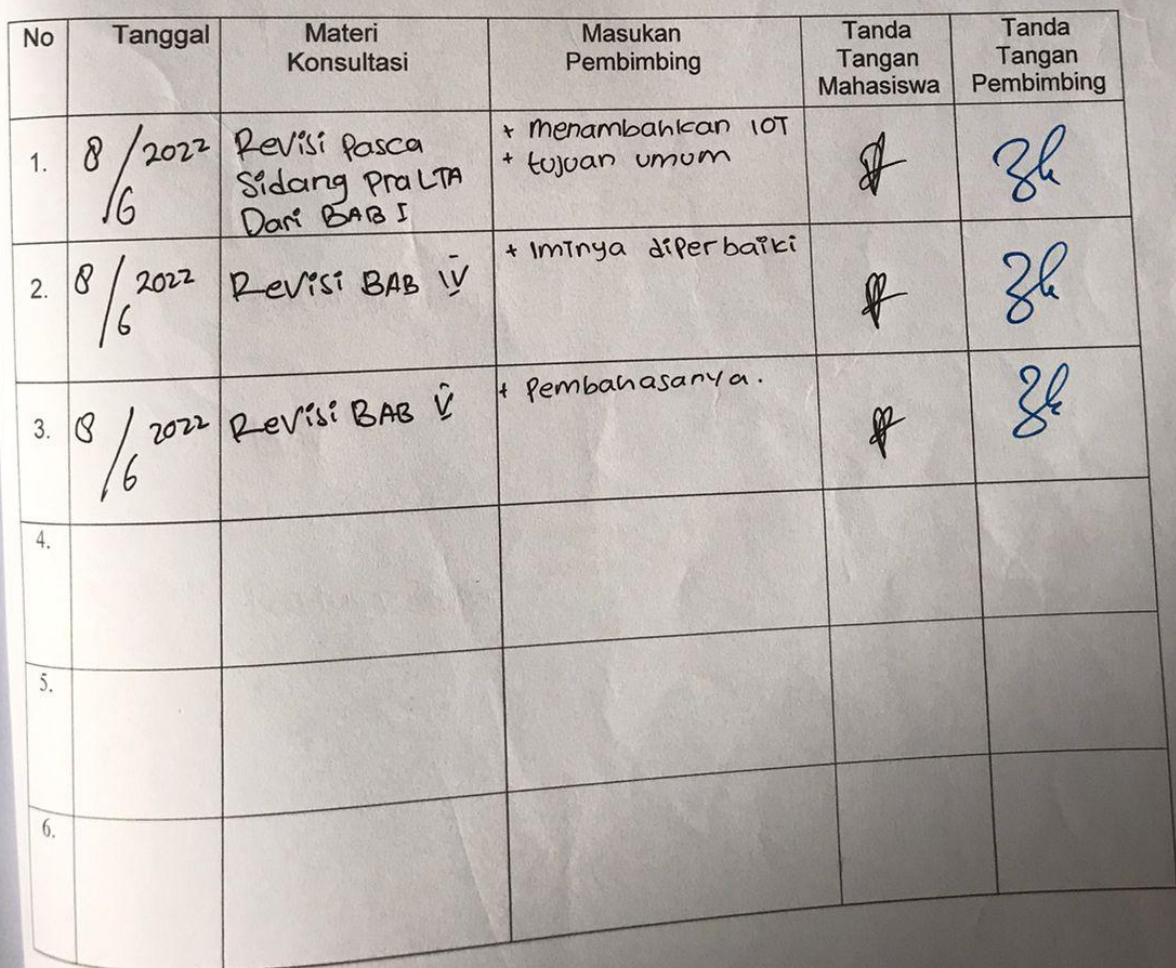 No Tanggal Materi Konsultasi Masukan Pembimbing Tanda Tangan Mahasiswa Tanda Tangan Pembimbing
1. 8/6 2022
Revisi Pasca
Sidang Pra LTA
Dari BAB I
+ Menambahkan IOT
+ tujuan umum
2. 8/6 2022
Revisi BAB IV
+ Iminya diperbaiki
3. 8/6 2022
Revisi BAB V
+ Pembahasanya.
4.
5.
6.